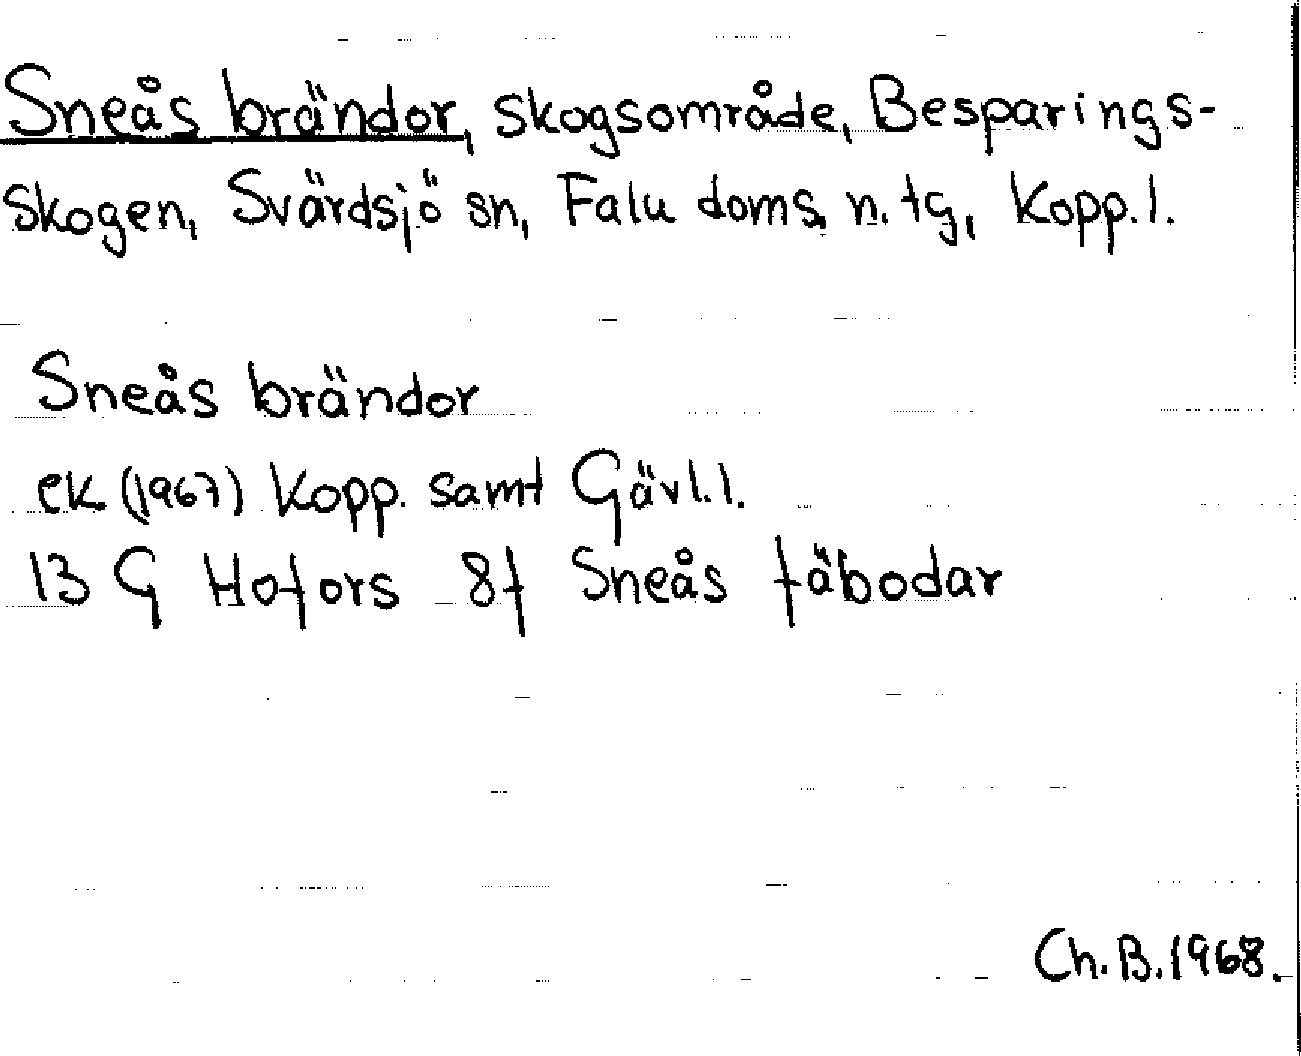 Sneås brändor, skogsområde, Besparings-
skogen, Svärdsjö sn, Falu doms. n. tg, Kopp.l.
Sneås brändor
ek (1967) Kopp. samt Gävl.l.
13 G Hofors 8f Sneås fäbodar
Ch.B.1968.